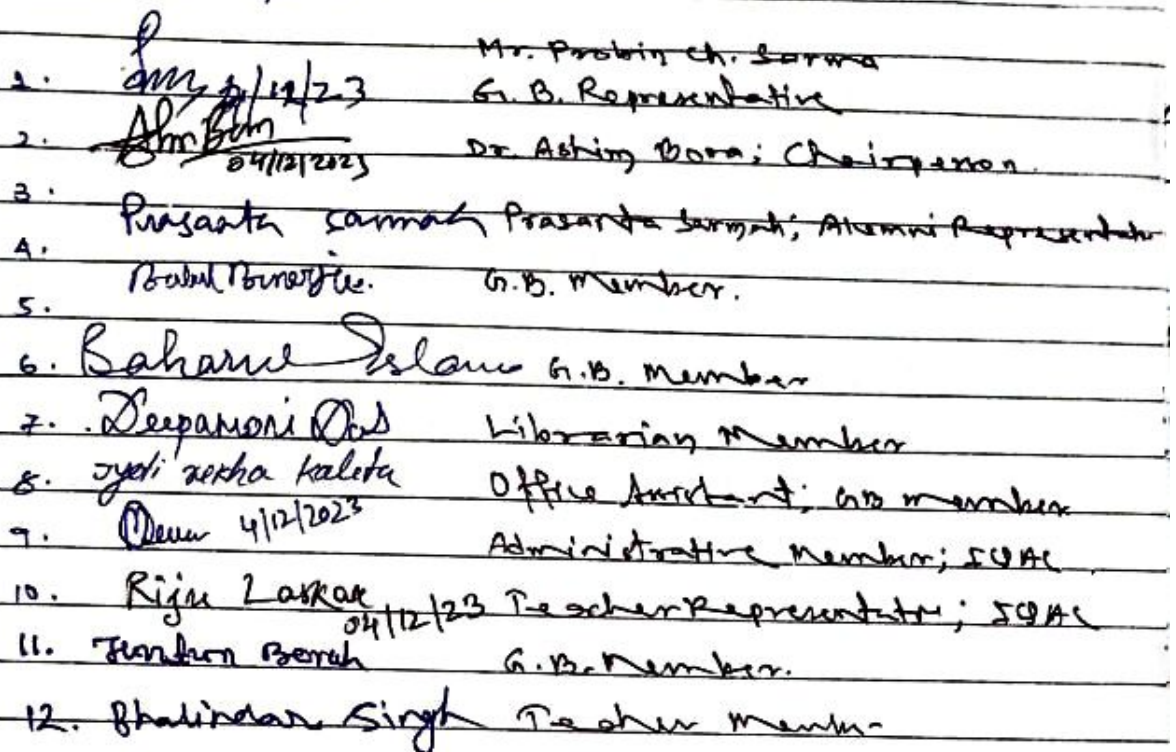 Mr. Probin Ch. Sarma
1. /12/23 G.B. Representative
2. Dr. Ashim Bora; Chairperson.
04/12/2023
3.
Prasanta Sarmah Prasanta Sarmah; Alumni Representative
4.
Babul Banerjee. G.B. Member.
5.
6. Baharul Islam G.B. Member
7. Deepamoni Das Librarian Member
8. Jyoti rekha Kalita Office Assistant; GB member
9. 4/12/2023 Administrative Member; IQAC
10. Riju Laskar 04/12/23 Teacher Representative; IQAC
11. Borah G.B. Member.
12. Bhalinder Singh Teacher Member